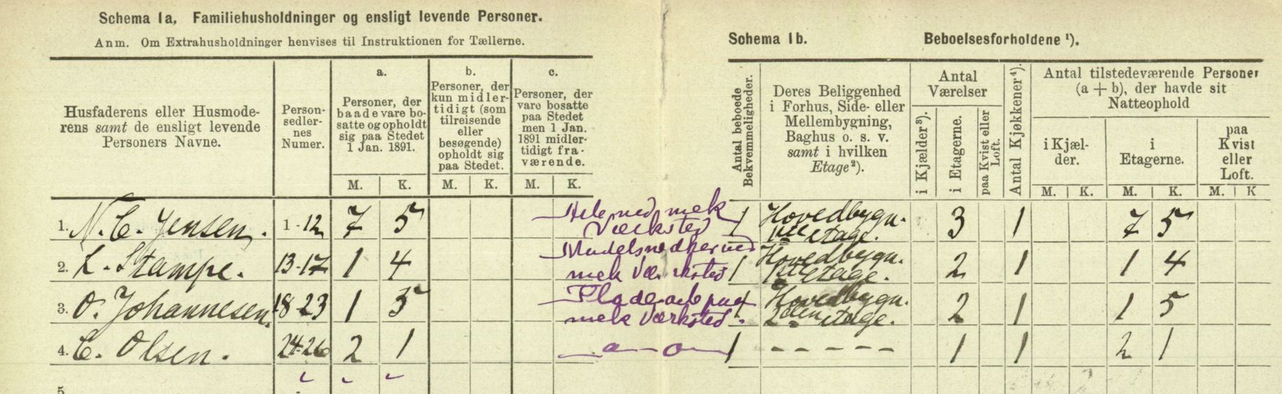 Schema 1a, Familiehusholdninger og ensligt levende Personer.
Anm. Om Extrahusholdninger henvises til Instruktionen for Tællerne.
Husfaderens eller Husmoderens samt de ensligt levende Personers Navne.
Person-sedler-nes Numer.
a. Personer, der baade vare bosatte og opholdt sig paa Stedet 1 Jan. 1891.
b. Personer, der kun midlertidigt (som tilreisende eller besøgende) opholdt sig paa Stedet.
c. Personer, der vare bosatte paa Stedet men 1 Jan. 1891 midlertidigt fraværende.
M. K. M. K. M. K.
Schema 1b. Beboelsesforholdene ¹).
Antal beboede Bekvemmeligheder.
Deres Beliggenhed i Forhus, Side- eller Mellembygning, Baghus o. s. v. samt i hvilken Etage²).
Antal Værelser
i Kjælder³).
i Etagerne.
paa Kvist eller Loft.
Antal Kjøkkener⁴).
Antal tilstedeværende Personer (a + b), der havde sit Natteophold
i Kjælder.
i Etagerne.
paa Kvist eller Loft.
M. K. M. K. M. K
1. N. C. Jensen. 1-12 7 5 mek Værksted 1 Hovedbygn. etage. 3 1 7 5
2. L. Stampe. 13-17 1 4 mek Værksted 1 Hovedbygn. etage. 2 1 1 4
3. O. Johannesen 18-23 1 5 mek Værksted. 1 Hovedbygn. 2den etage. 2 1 1 5
4. C. Olsen. 24-26 2 1 — a — o — 1 - - - - - 1 1 2 1
5